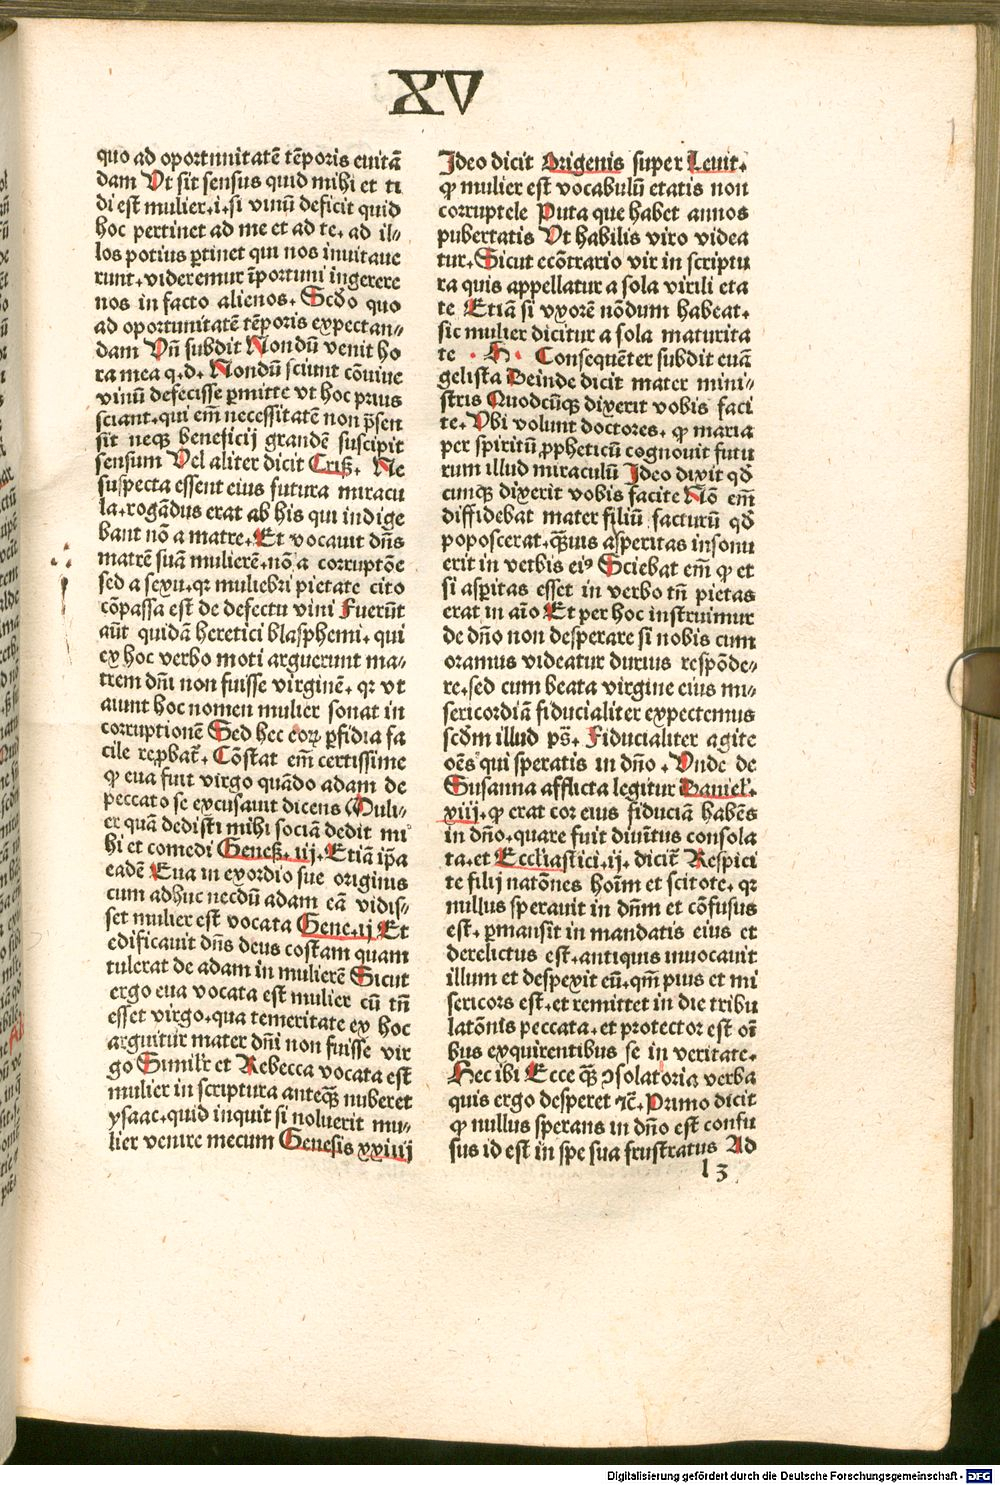 XV
quo ad oportunitatē tēporis euitā
dam Vt sit sensus quid mihi et ti
bi est mulier.i.si vinū deficit quid
hoc pertinet ad me et ad te. ad il⸗
los potius ꝑtinet qui nos inuitaue
runt. videremur īportuni īgerere
nos in facto alienos. Scđo quo
ad oportunitatē tēporis expectan⸗
dam Vn̄ subdit Nondū venit ho
ra mea q.d. Nondū sciunt cōuiue
vinū defecisse ꝑmitte vt hoc prius
sciant. qui em̄ necessitatē non p̄sen
sit neqꝫ beneficij grandē suscipit
sensum Vel aliter dicit Criß. Ne
suspecta essent eius futura miracu
la. rogādus erat ab his qui indige
bant nō a matre. Et vocauit dn̄s
matrē suā mulierē. nō a corruptōe
sed a sexu. qꝛ muliebri pietate cito
cōpassa est de defectu vini Fuerūt
aūt quidā heretici blasphemi. qui
ex hoc verbo moti arguerunt ma⸗
trem dn̄i non fuisse virginē. qꝛ vt
aiunt hoc nomen mulier sonat in
corruptionē Sed hec eoꝝ ꝑfidia fa
cile reꝓbat᷑. Cōstat em̄ certissime
ꝙ eua fuit virgo quādo adam de
peccato se excusauit dicens Muli⸗
er quā dedisti mihi sociā dedit mi
hi et comedi Geneß. iij. Etiā ip̄a
eadē Eua in exordio sue originis
cum adhuc necdū adam eā vidis⸗
set mulier est vocata Gene. ij Et
edificauit dn̄s deus costam quam
tulerat de adam in mulierē Sicut
ergo eua vocata est mulier cū tn̄
esset virgo. qua temeritate ex hoc
arguitur mater dn̄i non fuisse vir
go Similr̄ et Rebecca vocata est
mulier in scriptura anteqꝫ nuberet
ysaac. quid inquit si noluerit mu⸗
lier venire mecum Genesis xxiiij
Ideo dicit Origenis super Leuit.
ꝙ mulier est vocabulū etatis non
corruptele Puta que habet annos
pubertatis Vt habilis viro videa
tur. Sicut ecōtrario vir in scriptu
ra quis appellatur a sola virili eta
te Etiā si vxorē nōdum habeat.
sic mulier dicitur a sola maturita
te . H . Consequēter subdit euā
gelista Deinde dicit mater mini⸗
stris Quodcūqꝫ dixerit vobis faci
te. Vbi volunt doctores. ꝙ maria
per spiritū ꝓpheticū cognouit futu
rum illud miraculū Ideo dixit qđ
cunqꝫ dixerit vobis facite Nō em̄
diffidebat mater filiū facturū qđ
poposcerat. qꝫuis asperitas insonu
erit in verbis eiꝰ Sciebat em̄ ꝙ et
si asꝑitas esset in verbo tn̄ pietas
erat in aīo Et per hoc instruimur
de dn̄o non desperare si nobis cum
oramus videatur durius respōde⸗
re. sed cum beata virgine eius mi⸗
sericordiā fiducialiter expectemus
scđm illud ps̄. Fiducialiter agite
oēs qui speratis in dn̄o . Vnde de
Susanna afflicta legitur Daniel'.
xiij. ꝙ erat cor eius fiduciā habēs
in dn̄o. quare fuit diuīt᷑us consola
ta. et Eccl̄iastici. ij. dicit᷑ Respici
te filij natōnes hoīm et scitote. qꝛ
nullus sperauit in dn̄m et cōfusus
est. ꝑmansit in mandatis eius et
derelictus est. antiquis inuocauit
illum et despexit eū. qm̄ pius et mi
sericors est. et remittet in die tribu
latōnis peccata. et protector est oī
bus exquirentibus se in veritate.
Hec ibi Ecce qꝫ ↄsolatoria verba
quis ergo desperet ꝛc̄. Primo dicit
ꝙ nullus sperans in dn̄o est confu
sus id est in spe sua frustratus Ad
l 3
Digitalisierung gefördert durch die Deutsche Forschungsgemeinschaft - DFG